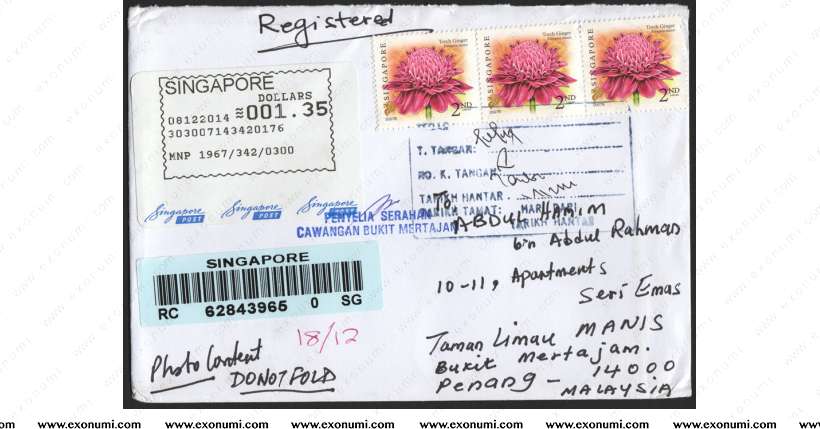 Registered
SINGAPORE
DOLLARS
08122014 ≈001.35
303007143420176
MNP 1967/342/0300
Singapore POST Singapore POST Singapore POST
Torch Ginger Torch Ginger Torch Ginger
SINGAPORE SINGAPORE SINGAPORE
2ND 2ND 2ND
T. TANGAN:
NO. K. TANGAN
TARIKH HANTAR
TARIKH TAMAT: HARI DARI
TARIKH HANTAR
PENYELIA SERAHAN
CAWANGAN BUKIT MERTAJAM
SINGAPORE
RC 62843965 0 SG
18/12
Photo Content
DO NOT FOLD
To,
ABDUL HAMIM
bin Abdul Rahman
10-11, Apartments
Seri Emas
Taman Limau MANIS
Bukit mertajam.
Penang - 14000
MALAYSIA
www.exonumi.com www.exonumi.com www.exonumi.com www.exonumi.com www.exonumi.com